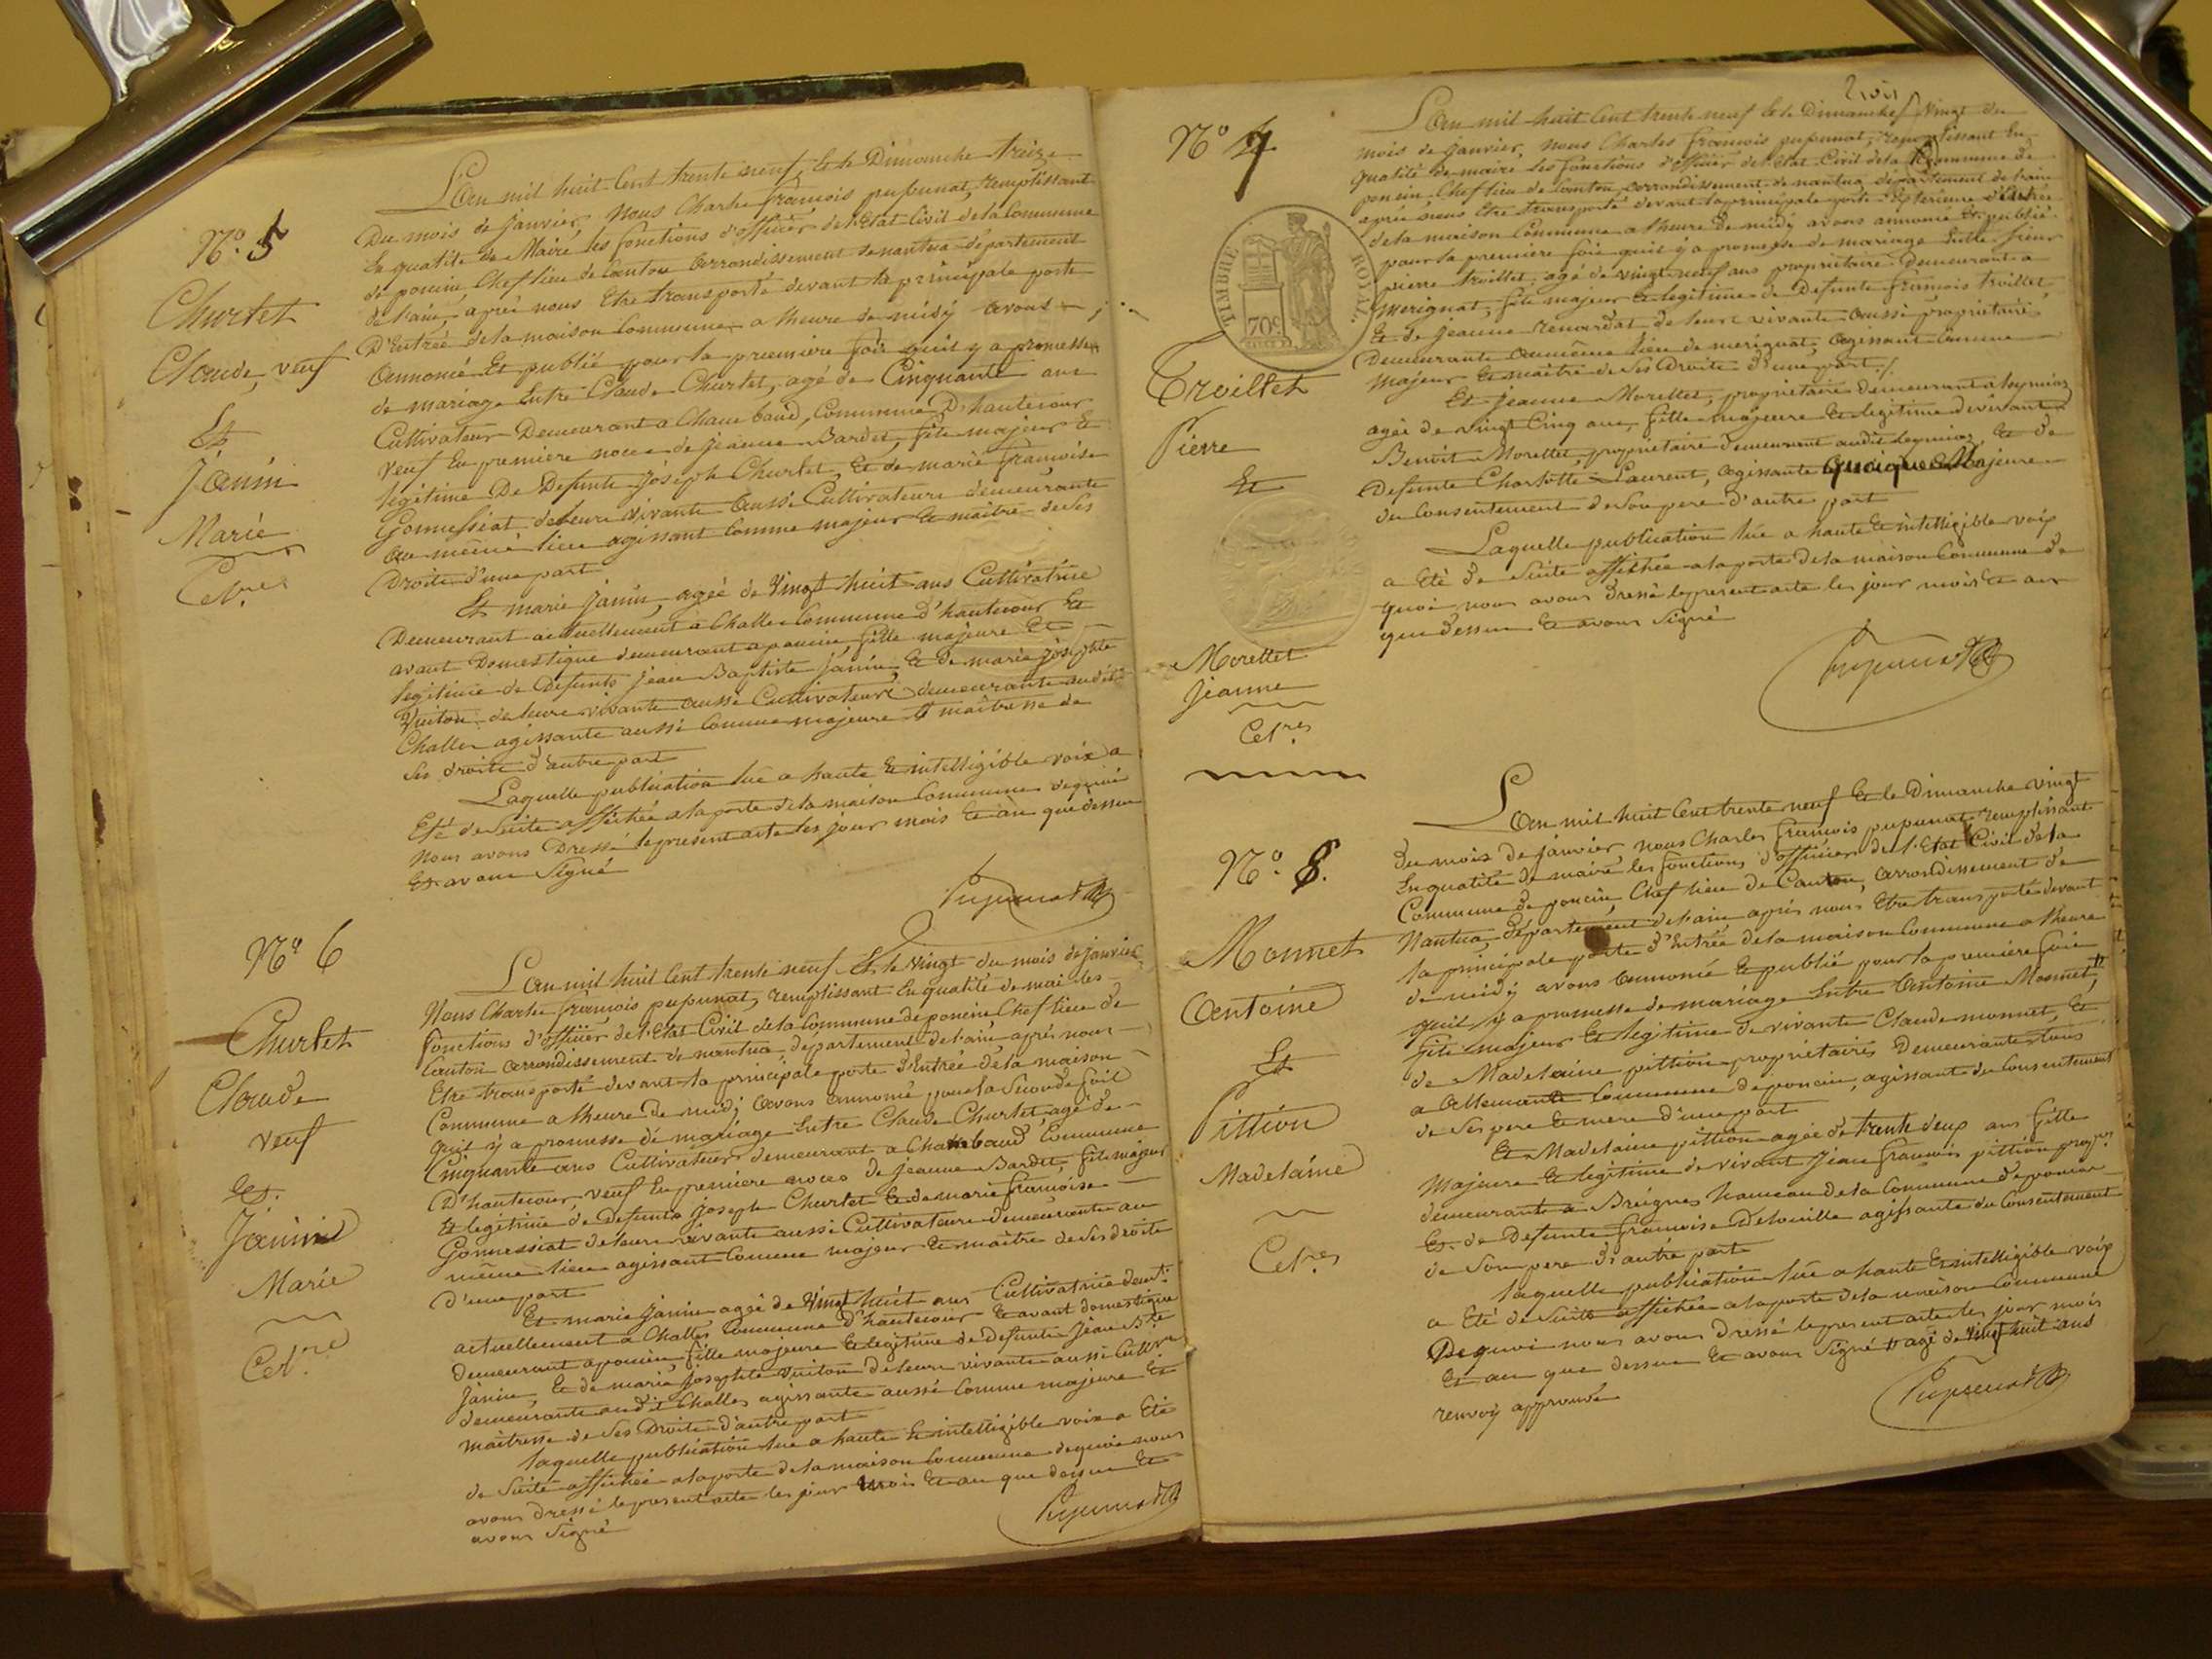 N.º 5
Churlet
Claude, veuf
Et
Janin
Marie
L'an mil huit Cent trente neuf, Et le Dimanche treize
Du mois de janvier, Nous Charles françois pupunat, remplissant
En qualité de Maire les fonctions d'officier de l'Etat Civil de la Commune
de poncin, Chef lieu de Canton Arrondissement de nantua département
de l'ain, après nous Etre transporté devant la principale porte
D'Entrée de la maison Commune a l'heure de midy avons
Annoncé Et publié pour la premiere fois qu'il y a promesse
de mariage Entre Claude Churlet, agé de Cinquante ans
Cultivateur Demeurant a Chambaud, Commune D'hautecour
veuf En premiere noces de jeanne Bardet, fils majeur Et
legitime De Defunts joseph Churlet, Et de marie françoise
Gonnessiat de leurs vivants Aussi Cultivateurs demeurants
au même lieu agissant Comme majeur Et maître de ses
Droits d'une part
Et marie Janin, agée de Vingt huit ans Cultivatrice
Demeurant actuellement a Challes Commune D'hautecour Et
avant Domestique demeurant a poncin, fille majeure Et
legitime de Defunts jean Baptiste janin, Et de marie josephte
Vuiton de leurs vivants aussi Cultivateurs demeurants audit
Challes agissante aussi Comme majeure Et maîtresse de
ses droits d'autre part
Laquelle publication lue a haute Et intelligible voix a
Eté de Suite affichée a la porte de la maison Commune de quoi
Nous avons Dressé le present acte les jour mois Et an que dessus
Et avons Signé
Pupunat
Nº 6
Churlet
Claude
veuf
Et
Janin
Marie
L'an mil huit Cent trente neuf Et le Vingt du mois de janvier
Nous Charles françois pupunat, remplissant En qualité de maire les
fonctions d'officier de l'Etat Civil de la Commune de poncin Chef lieu de
Canton Arrondissement de nantua, département de l'ain après nous
Etre transporté devant la principale porte d'Entrée de la maison
Commune a l'heure De midi avons annoncé pour la Seconde fois
qu'il y a promesse de mariage Entre Claude Churlet, agé de
Cinquante ans Cultivateur demeurant a Chambaud Commune
D'hautecour, veuf En premiere noces de jeanne Bardet, fils majeur
Et legitime de Defunts joseph Churlet Et de marie françoise
Gonnessiat de leurs vivants aussi Cultivateurs demeurants au
même lieu agissant Comme majeur Et maître de ses droits
d'une part
Et marie janin agée de Vingt huit ans Cultivatrice demt.
actuellement a Challes Commune d'hautecour Et avant domestique
demeurant a poncin, fille majeure Et legitime de Defunts Jean Bte
Janin, Et de marie josephte Vuiton de leurs vivants aussi Cultrs
demeurants audit Challes agissante aussi Comme majeure Et
maîtresse de ses Droits d'autre part
laquelle publication lue a haute Et intelligible voix a Eté
de Suite affichée a la porte de la maison Commune de quoi nous
avons dressé le present acte les jour mois Et an que dessus Et
avons Signé
Pupunat
Nº 7
TIMBRE ROYAL.
70c
Troillet
Pierre
Et
Morellet
Jeanne
L'an mil huit Cent trente neuf Et le Dimanche Vingt du
mois de janvier, nous Charles françois pupunat, remplissant En
qualité de maire les fonctions d'officier de l'Etat Civil de la Commune de
poncin, Chef lieu de Canton, arrondissement de nantua département de l'ain
après nous Etre transporté devant la principale porte Exterieure d'Entrée
de la maison Commune a l'heure de midy avons annoncé Et publié
pour la premiere fois qu'il y a promesse de mariage Entre sieur
pierre troillet, agé de vingt neuf ans proprietaire Demeurant a
merignat, fils majeur Et legitime de Defunts françois troillet,
Et de jeanne renardat de leurs vivants aussi proprietaires
Demeurants au même lieu de merignat, agissant Comme
majeur Et maître de ses Droits D'une part
Et jeanne Morellet, proprietaire demeurant a
agée de vingt Cinq ans, fille majeure Et legitime de vivant
Benoit Morellet, proprietaire demeurant audit Et de
Defunte Charlotte Laurent, agissante quoique Majeure
du Consentement de Son pere d'autre part
Laquelle publication lue a haute Et intelligible voix
a Eté de Suite affichée a la porte de la maison Commune de
quoi nous avons dressé le present acte les jour mois Et an
que dessus Et avons Signé
Pupunat
Nº. 8.
Monnet
Antoine
Et
Pittion
Madelaine
L'an mil huit Cent trente neuf Et le Dimanche vingt
du mois de janvier nous Charles françois pupunat remplissant
En qualité de maire les fonctions d'officier de l'Etat Civil de la
Commune de poncin, Chef lieu de Canton, arrondissement de
Nantua, département de l'ain après nous Etre transporté devant
la principale porte D'Entrée de la maison Commune a l'heure
de midy avons Annoncé Et publié pour la premiere fois
qu'il y a promesse de mariage Entre Antoine Monnet
fils majeur Et legitime de vivants Claude monnet, Et
de Madelaine pittion proprietaires Demeurants tous
a Allemant Commune de poncin, agissant du Consentement
de Ses pere Et mere d'une part
Et Madelaine pittion agée de trente deux ans fille
Majeure Et legitime de vivant jean françois pittion propre.
demeurants a Breignes hameau de la Commune de poncin
Et de Defunte françoise agissante du Consentement
de Son pere D'autre part
laquelle publication lue a haute Et intelligible voix
a Eté de Suite affichée a la porte de la maison Commune
De quoi nous avons dressé le present acte les jour mois
Et an que dessus Et avons Signé # agé de Vingt huit ans
renvoy approuvé
Pupunat